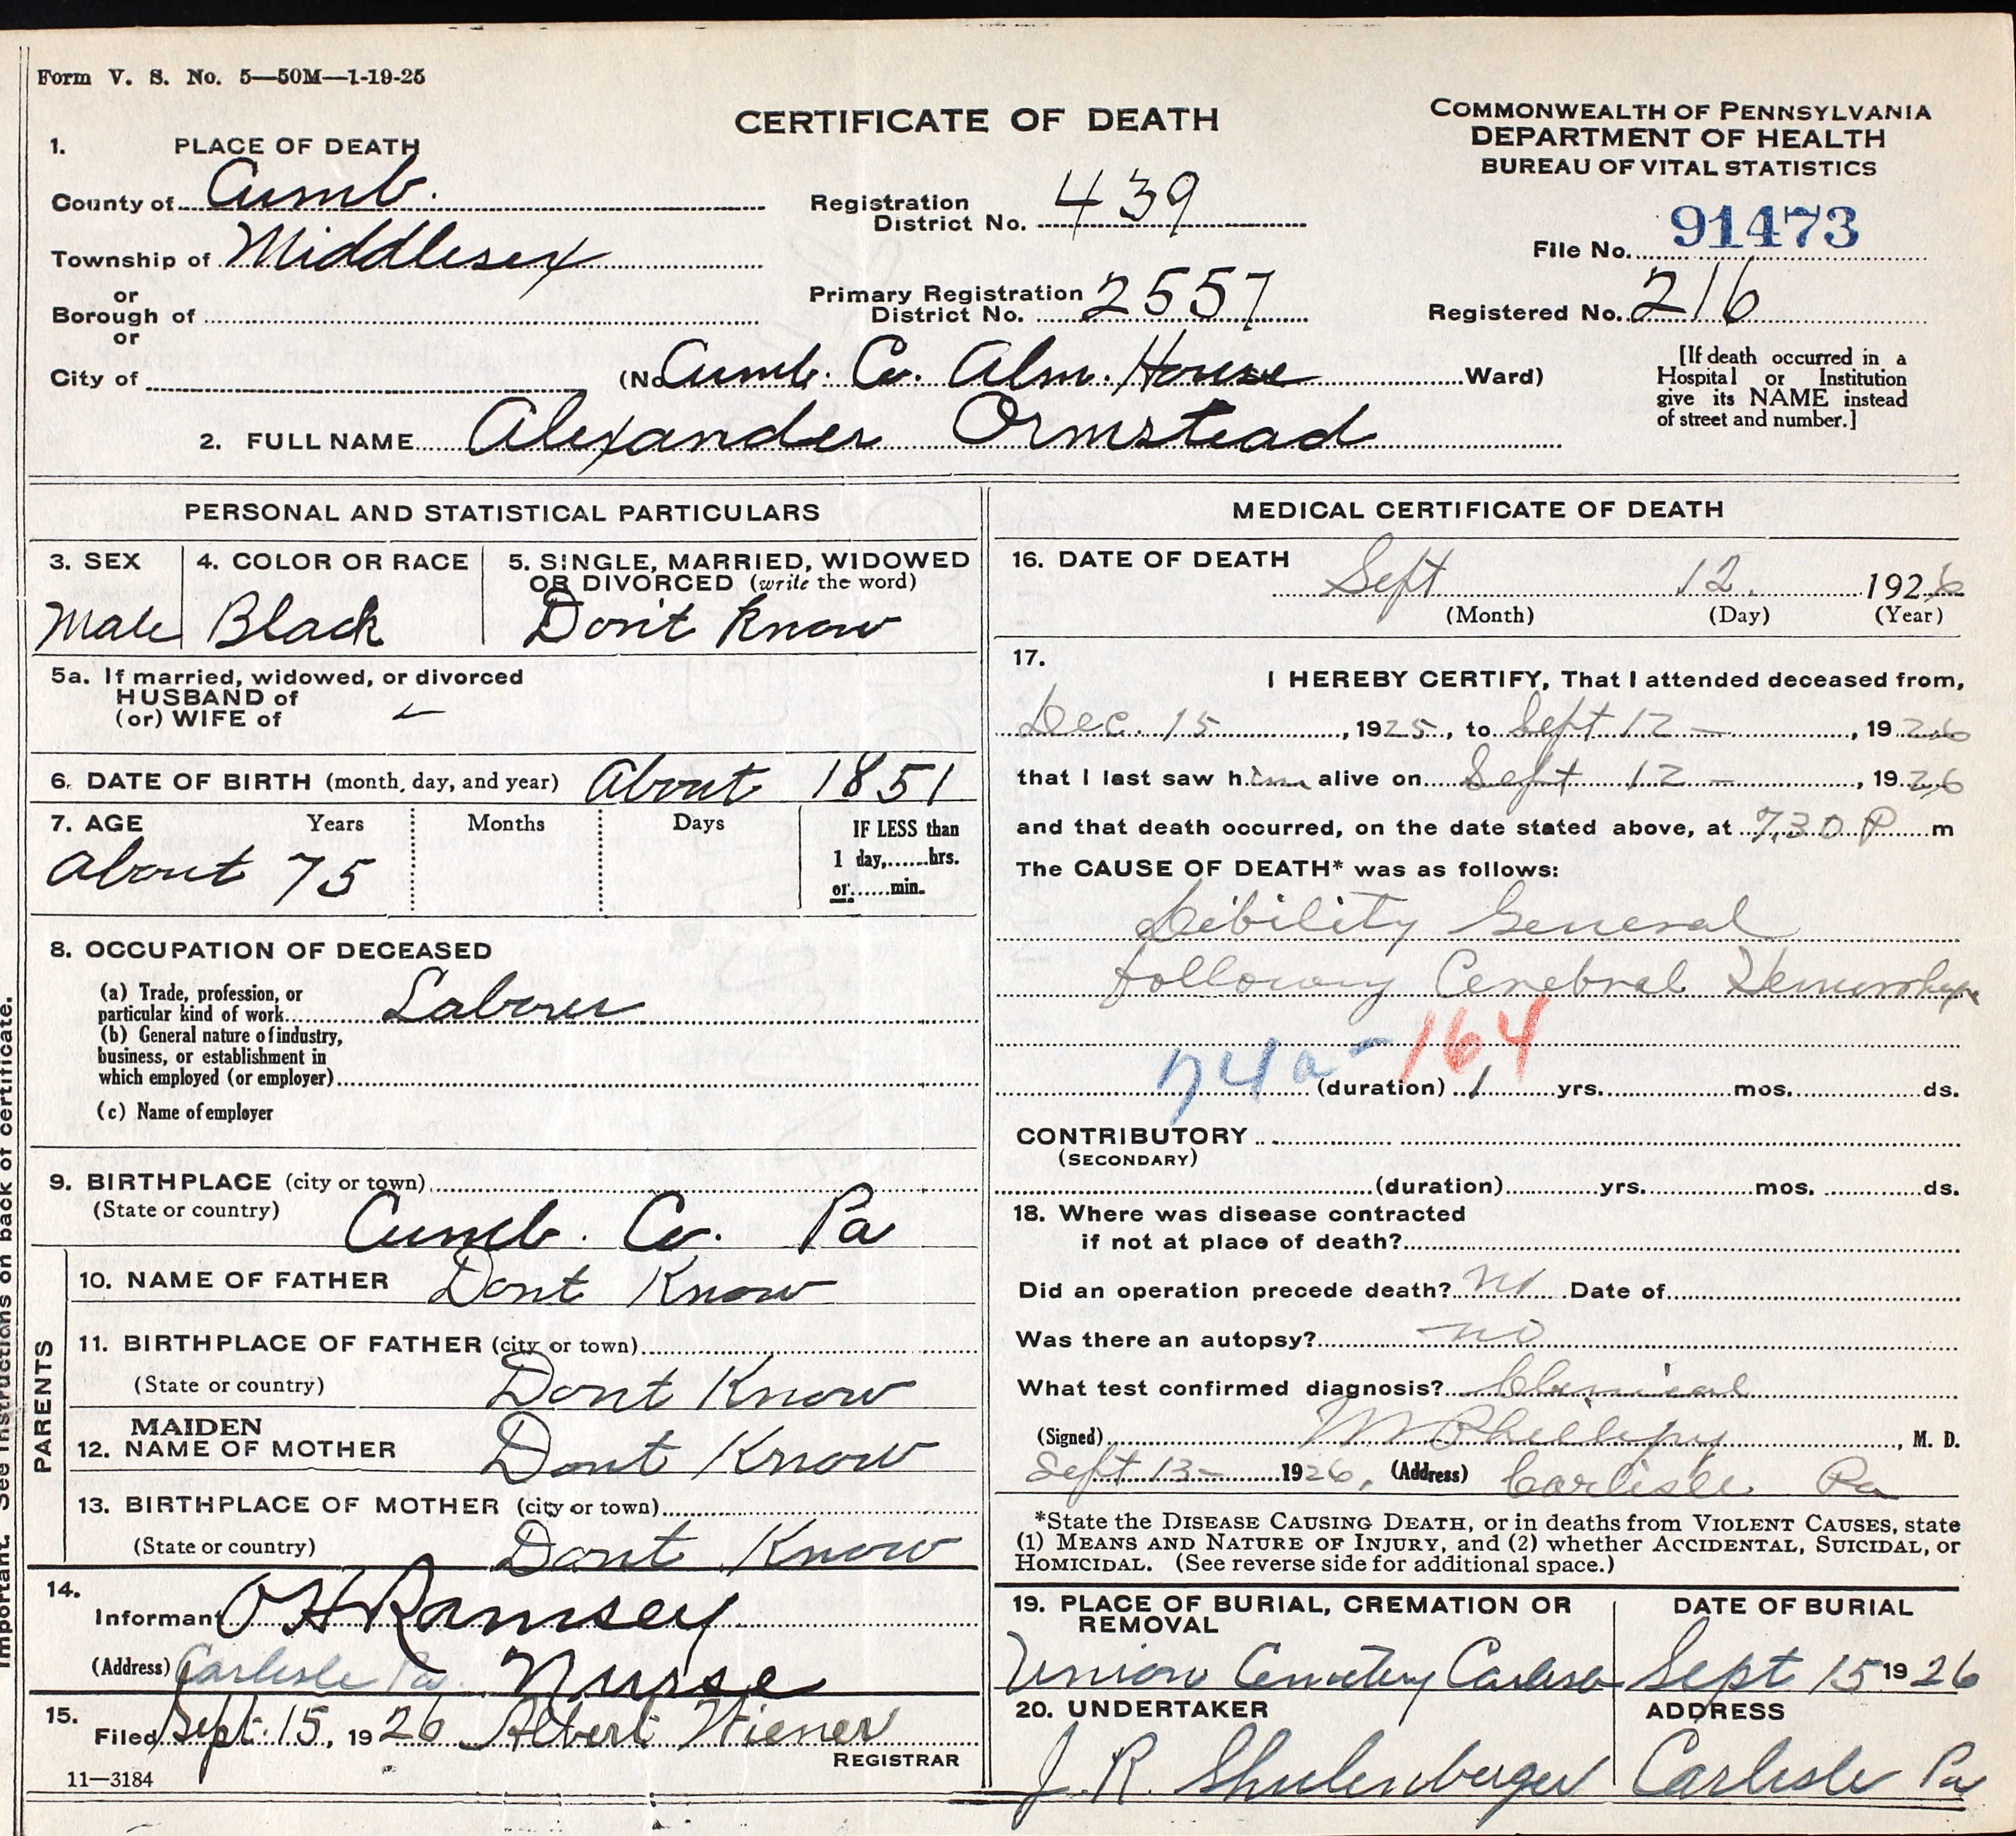 Form V. S. No. 5—50M—1-19-25
CERTIFICATE OF DEATH
COMMONWEALTH OF PENNSYLVANIA
DEPARTMENT OF HEALTH
BUREAU OF VITAL STATISTICS
1. PLACE OF DEATH
County of Cumb.
Registration District No. 439
File No. 91473
Township of Middlesex
or
Borough of
Primary Registration District No. 2557
Registered No. 216
or
City of (No Cumb. Co. Alm. House Ward)
[If death occurred in a Hospital or Institution give its NAME instead of street and number.]
2. FULL NAME Alexander Ormstead
PERSONAL AND STATISTICAL PARTICULARS
3. SEX
Male
4. COLOR OR RACE
Black
5. SINGLE, MARRIED, WIDOWED OR DIVORCED (write the word)
Don't Know
5a. If married, widowed, or divorced
HUSBAND of
(or) WIFE of
6. DATE OF BIRTH (month, day, and year) About 1851
7. AGE Years Months Days
About 75
IF LESS than
1 day,......hrs.
or......min.
8. OCCUPATION OF DECEASED
(a) Trade, profession, or
particular kind of work Laborer
(b) General nature of industry,
business, or establishment in
which employed (or employer)
(c) Name of employer
9. BIRTHPLACE (city or town)
(State or country) Cumb. Co. Pa
PARENTS
10. NAME OF FATHER Dont Know
11. BIRTHPLACE OF FATHER (city or town)
(State or country) Dont Know
MAIDEN
12. NAME OF MOTHER Dont Know
13. BIRTHPLACE OF MOTHER (city or town)
(State or country) Dont Know
14.
Informant O H Ramsey
(Address) Carlisle Pa. Nurse
15.
Filed Sept. 15, 1926 Albert Wiener
REGISTRAR
11—3184
MEDICAL CERTIFICATE OF DEATH
16. DATE OF DEATH
Sept 12. 1926
(Month) (Day) (Year)
17.
I HEREBY CERTIFY, That I attended deceased from,
Dec. 15, 1925, to Sept 12 —, 1926
that I last saw him alive on Sept 12 —, 1926
and that death occurred, on the date stated above, at 7,30 P m
The CAUSE OF DEATH* was as follows:
Debility General
following Cerebral Hemorrhage
74a - 164
(duration) 1 yrs. mos. ds.
CONTRIBUTORY
(SECONDARY)
(duration) yrs. mos. ds.
18. Where was disease contracted
if not at place of death?
Did an operation precede death? No Date of
Was there an autopsy? no
What test confirmed diagnosis? Clinical
(Signed) M Phillipy, M. D.
Sept 13 - 1926, (Address) Carlisle Pa
*State the DISEASE CAUSING DEATH, or in deaths from VIOLENT CAUSES, state
(1) MEANS AND NATURE OF INJURY, and (2) whether ACCIDENTAL, SUICIDAL, or
HOMICIDAL. (See reverse side for additional space.)
19. PLACE OF BURIAL, CREMATION OR REMOVAL
Union Cemetery Carlisle
DATE OF BURIAL
Sept 15 1926
20. UNDERTAKER
J. R. Shulenberger
ADDRESS
Carlisle Pa
important. See instructions on back of certificate.